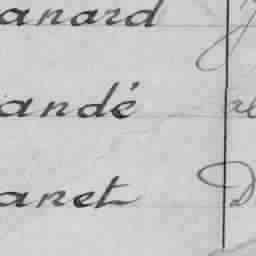 anard
andé
anet D